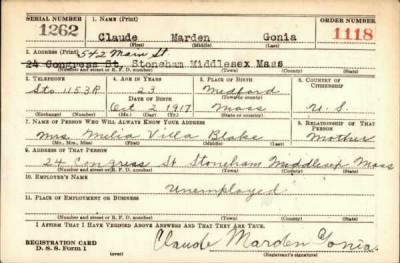 SERIAL NUMBER 1. NAME (Print) ORDER NUMBER
1262 Claude Marden Gonia 1118
(First) (Middle) (Last)
2. ADDRESS (Print) 542 Main St.
24 Congress St. Stoneham Middlesex Mass
(Number and street or R. F. D. number) (Town) (County) (State)
3. TELEPHONE 4. AGE IN YEARS 5. PLACE OF BIRTH 6. COUNTRY OF CITIZENSHIP
Sto. 1153R 23 Medford
DATE OF BIRTH (Town or county)
Oct 2 1917 Mass U. S.
(Exchange) (Number) (Mo.) (Day) (Yr.) (State or country)
7. NAME OF PERSON WHO WILL ALWAYS KNOW YOUR ADDRESS 8. RELATIONSHIP OF THAT PERSON
Mrs. Melia Villa Blake Mother
(Mr., Mrs., Miss) (First) (Middle) (Last)
9. ADDRESS OF THAT PERSON
24 Congress St Stoneham Middlesex Mass
(Number and street or R. F. D. number) (Town) (County) (State)
10. EMPLOYER'S NAME
Unemployed
11. PLACE OF EMPLOYMENT OR BUSINESS
(Number and street or R. F. D. number) (Town) (County) (State)
I AFFIRM THAT I HAVE VERIFIED ABOVE ANSWERS AND THAT THEY ARE TRUE.
REGISTRATION CARD
D. S. S. Form 1 Claude Marden Gonia
(Registrant's signature)